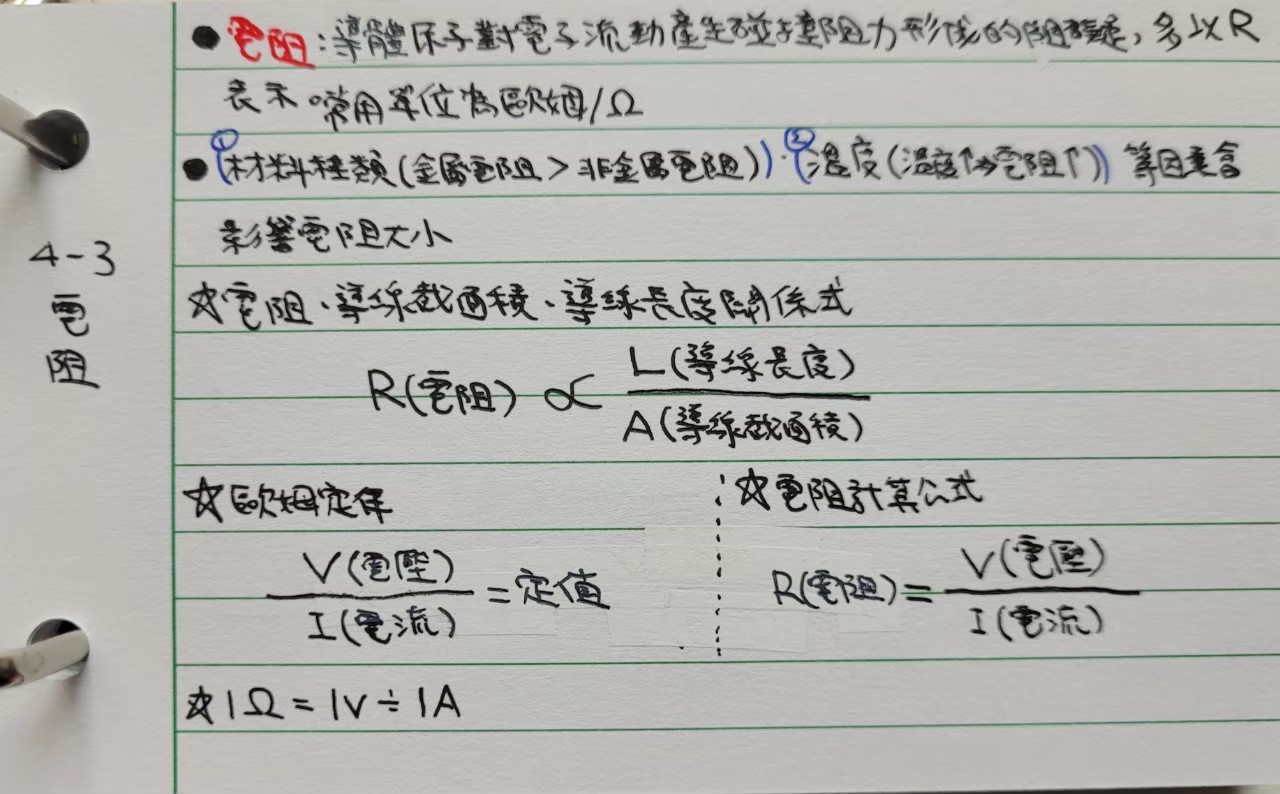 4-3
電
阻
●電阻:導體原子對電子流動產生碰撞阻力形成的阻礙,多以R
表示。常用單位為歐姆/Ω
●①(材料種類(金屬電阻>非金屬電阻))、②(溫度(溫度↑⇒電阻↑))等因素會
影響電阻大小
☆電阻、導線截面積、導線長度關係式
R(電阻) ∝ L(導線長度)
A(導線截面積)
☆歐姆定律
V(電壓)
I(電流)
=定值
☆電阻計算公式
R(電阻)= V(電壓)
I(電流)
☆1Ω=1V÷1A